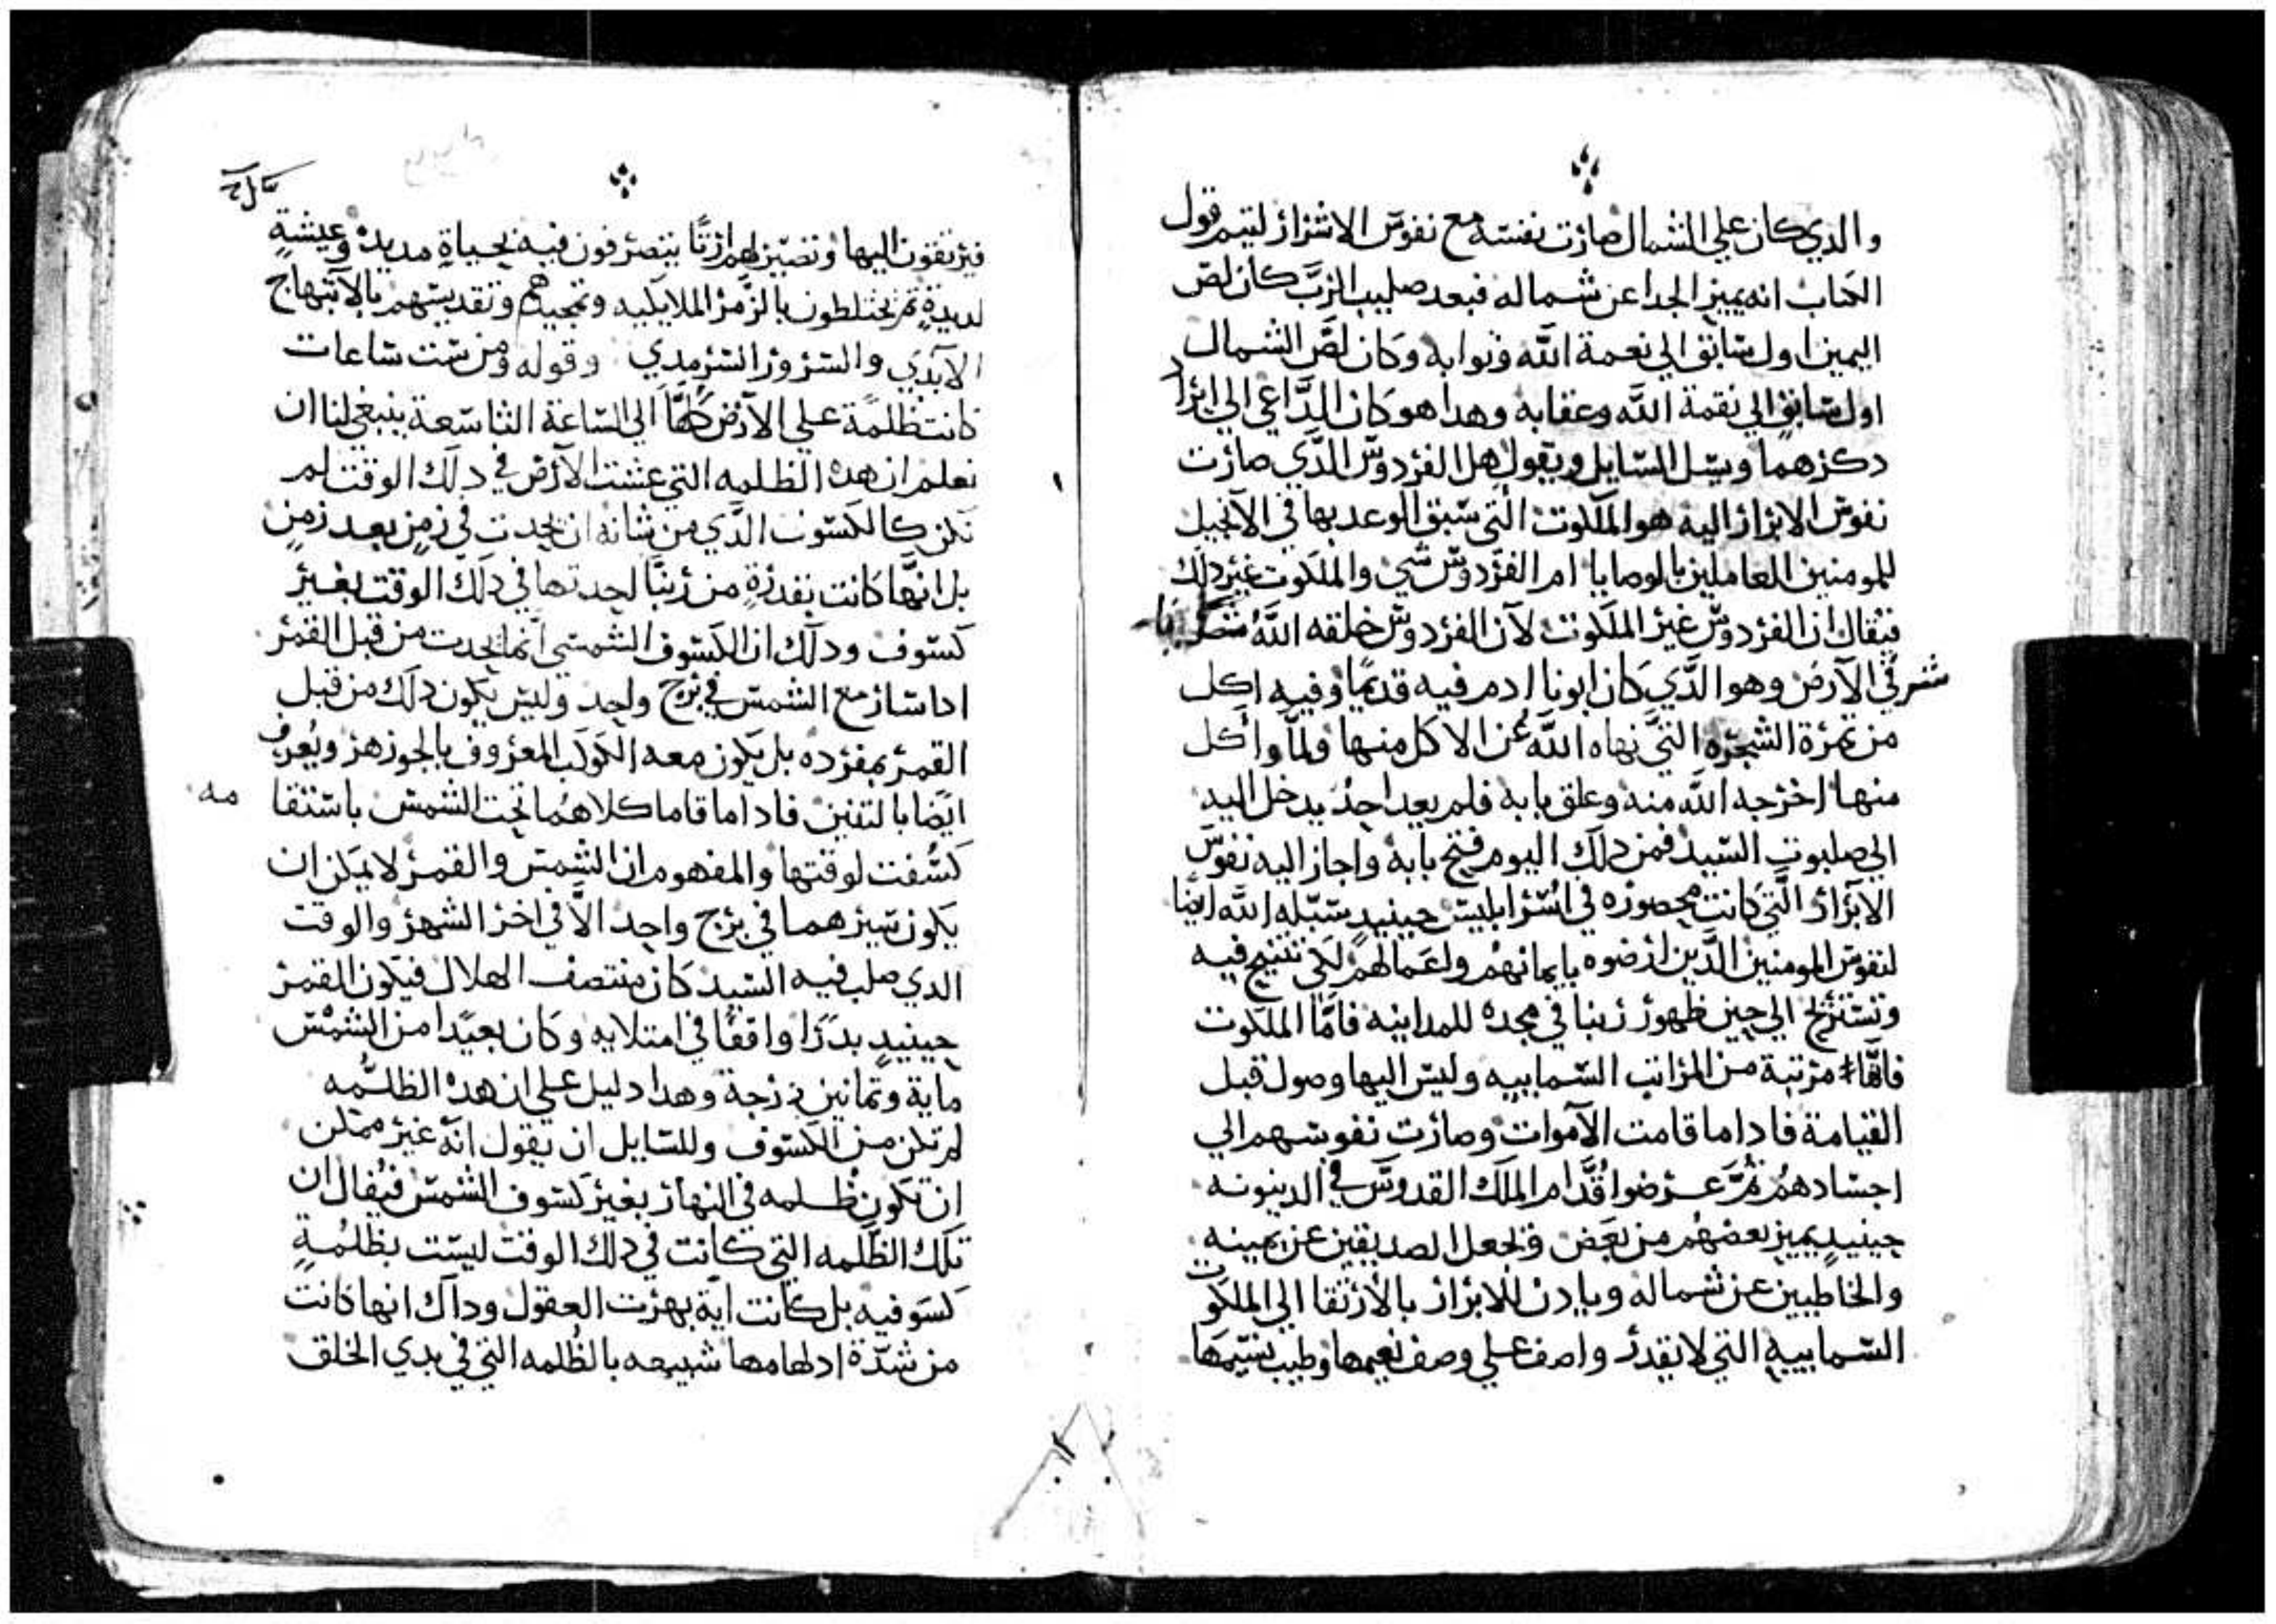 والدي كان علي الشمال صارت نفسه مع نفوس الاشرار ليتم قول
الكتاب انه يميز الجدا عن شماله فبعد صليب الرَّب كان لص
اليمين اول سابق الي نعمة اللَّه وثوابه وكان لصَّ الشمال
اول سابق الي نقمة اللَّه وعقابه وهدا هو كان الدَّاعي الي ايراد
دكرهما ويسل السايل ويقول هل الفردوس الدَّي صارت
نفوس الابرار اليه هو الملكوت التَّي سبق الوعد بها في الانجيل
للمومنين العاملين بالوصايا ام الفردوس شي والملكوت غير دلك
فيقال ان الفردوس غير الملكوت لان الفردوس خلقه اللَّه
شرقي الارض وهو الدَّي كان ابونا ادم فيه قديمًا وفيه اكل
من تمرة الشجره التَّي نهاه اللَّه عن الاكل منها ولمَّا واكل
منها اخرجه اللَّه منه وغلق بابه فلم يعد احدُ يدخل اليه
الي صلبوت السيد فمن دلك اليوم فتح بابه واجاز اليه نفوس
الابرار التَّي كانت محصوره في اسر ابليس حينيدٍ سبَّله اللَّه ايضا
لنفوس المومنين الدَّين ارضوه بايمانهم واعمالهم لكي تتنيح فيه
وتستريح الي حين ظهور ربنا في مجده للمداينه فامَّا الملكوت
فانَّها مرتبة من المراتب السماييه وليس اليها وصول قبل
القيامة فاداما قامت الاموات وصارت نفوسهم الي
اجسادهم ثُمَّ عرضوا قُدَّام الملك القدوس في الدينونه
حينيدٍ يميز بعضهم من بعض ويجعل الصديقين عن يمينه
والخاطيين عن شماله ويادن للابرار بالارتقا الي الملكوت
السماييه التي لا يقدر واصف علي وصف نعيمها وطيب نسيمها
فيرتقون اليها وتصير لهم ارثًا يتصرفون فيه بحياةٍ مديدة وعيشةٍ
لديدةٍ ثم يختلطون بالزمر الملايكيه وتمجيدهم وتقديسهم بالابتهاج
الابدي والسرور السرمدي وقوله ومن ست ساعات
كانت ظلمة علي الارض كلَّها الي الساعة التاسعة ينبغي لنا ان
نعلم ان هده الظلمه التي غشت الارض في دلك الوقت لم
تكن كالكسوف الدَّي من شانه ان يحدت في زمنٍ بعد زمنٍ
بل انَّها كانت بقدرةٍ من ربنَّا احدتها في دلك الوقت بغير
كسوف ودلك ان الكسوف الشمسي انَّما يحدت من قبل القمر
اداسار مع الشمس في برج واحد وليس يكون دلك من قبل
القمر بمفرده بل يكون معه الكوكب المعروف بالجوزهر ويُعرف
ايضا بالتنين فاداما قاما كلاهما تحت الشمس باستقا مه
كُسفت لوقتها والمفهوم ان الشمس والقمر لا يمكن ان
يكون سيرهما في برج واحد الاَّ في اخر الشهر والوقت
الدي صلب فيه السيد كان منتصف الهلال فيكون القمر
حينيدٍ بدرًا واقفًا في امتلايه وكان بعيدًا من الشمس
ماية وتمانين درجة وهدا دليل علي ان هده الظلمه
لم تكن من الكسوف وللسايل ان يقول انَّه غير ممكن
ان تكون ظلمه في النهار بغير كسوف الشمس فيُقال ان
تلك الظلمه التي كانت في دلك الوقت ليست بظلمةٍ
كسوفيه بل كانت اية بهرت العقول وداك انها كانت
من شدَّة ادلهامها شبيهه بالظلمه التي في بدي الخلق